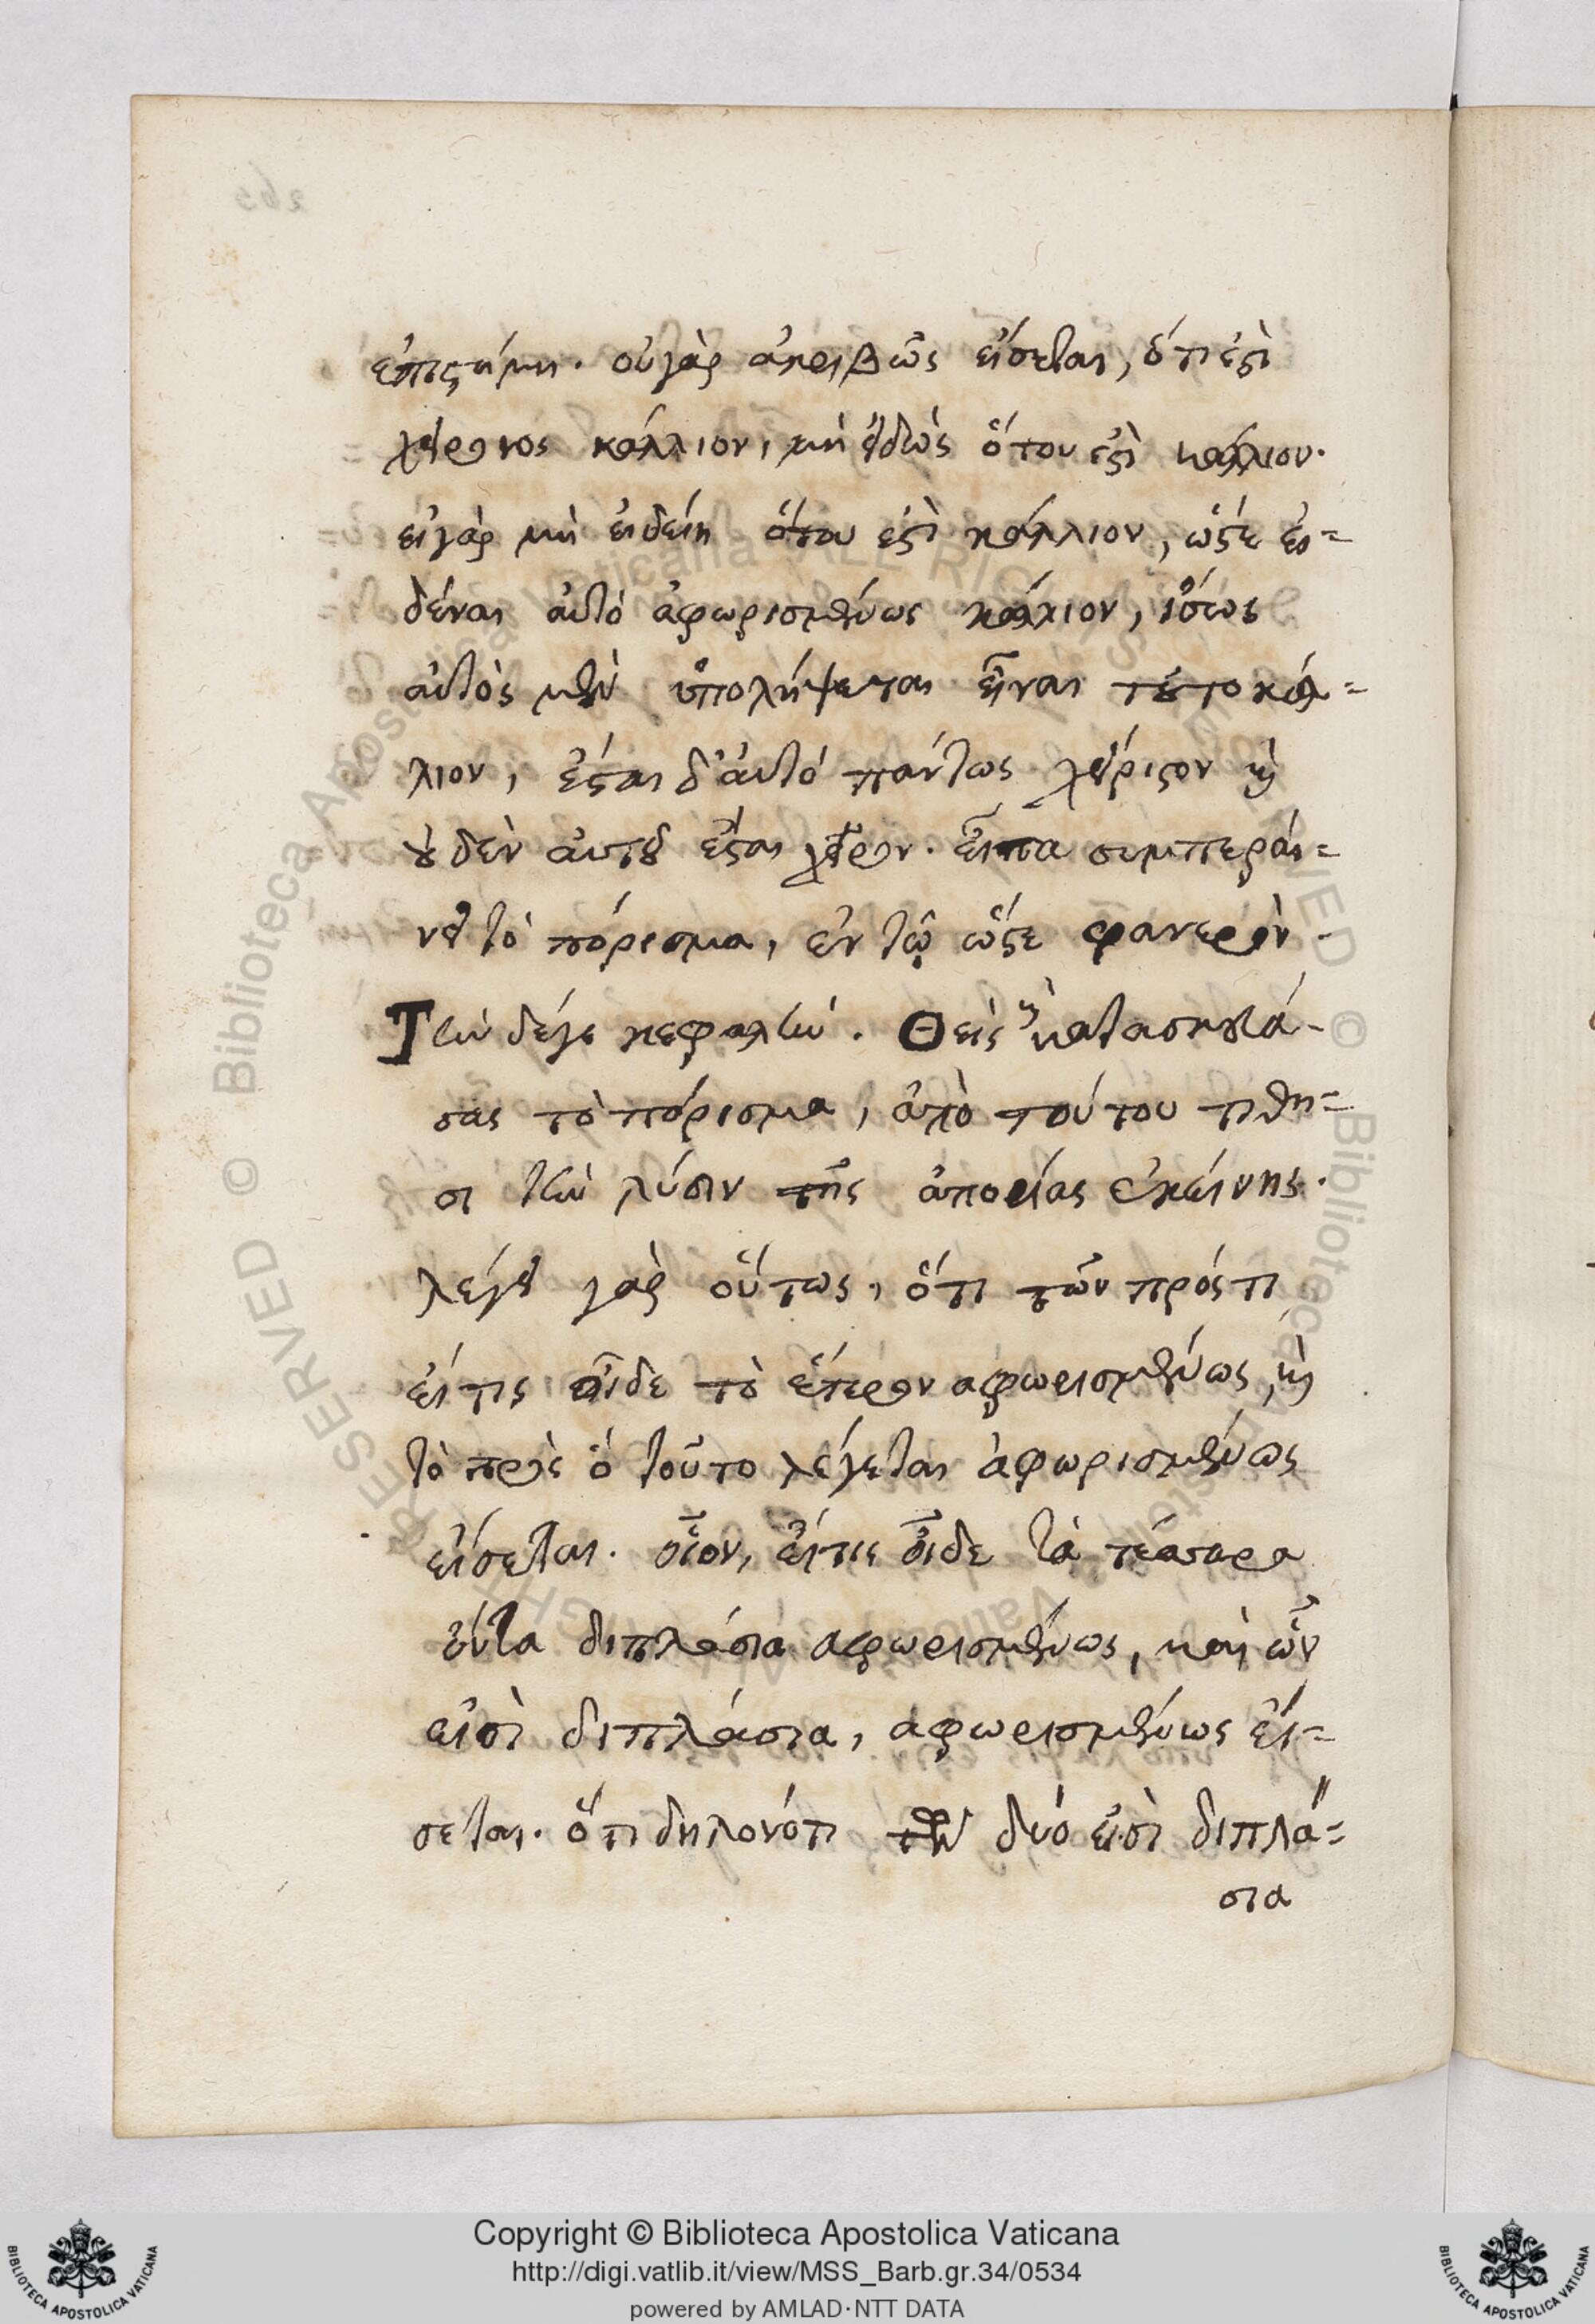 ἐπιστήμη. οὐ γὰρ ἀκριβῶς εἴσεται, ὅτι ἐστὶ
χείρονος κάλλιον, μὴ εἰδὼς ὅτου ἐστὶ κάλλιον.
εἰ γὰρ μὴ εἰδείη ὅτου ἐστὶ κάλλιον, ὥστε εἰ=
δέναι αὐτὸ ἀφωρισμένως κάλλιον, ἴσως
αὐτὸς μὲν ὑπολήψεται εἶναι τοῦτο κάλ=
λιον, ἔσται δ' αὐτὸ πάντως χείριστον καὶ
οὐδὲν αὐτοῦ ἔσται χεῖρον. εἶτα συμπεραί=
νει τὸ πόρισμα, ἐν τῷ ὥστε φανερὸν.
Τὴν δέγε κεφαλὴν. Θεὶς καὶ κατασκευά-
σας τὸ πόρισμα, ἀπὸ τούτου τίθη=
σι τὴν λύσιν τῆς ἀπορίας ἐκείνης.
λέγει γὰρ οὕτως, ὅτι τῶν πρός τι
εἴ τις οἶδε τὸ ἕτερον ἀφωρισμένως, καὶ
τὸ πρὸς ὃ τοῦτο λέγεται ἀφωρισμένως
εἴσεται. οἷον, εἴτις οἶδε τὰ τέσσαρα
ὄντα διπλάσια ἀφωρισμένως, καὶ ὧν
εἰσὶ διπλάσια, ἀφωρισμένως εἴ=
σεται. ὅτι δηλονότι τῶν δύο εἰσὶ διπλά=
σια
Copyright © Biblioteca Apostolica Vaticana
http://digi.vatlib.it/view/MSS_Barb.gr.34/0534
powered by AMLAD·NTT DATA